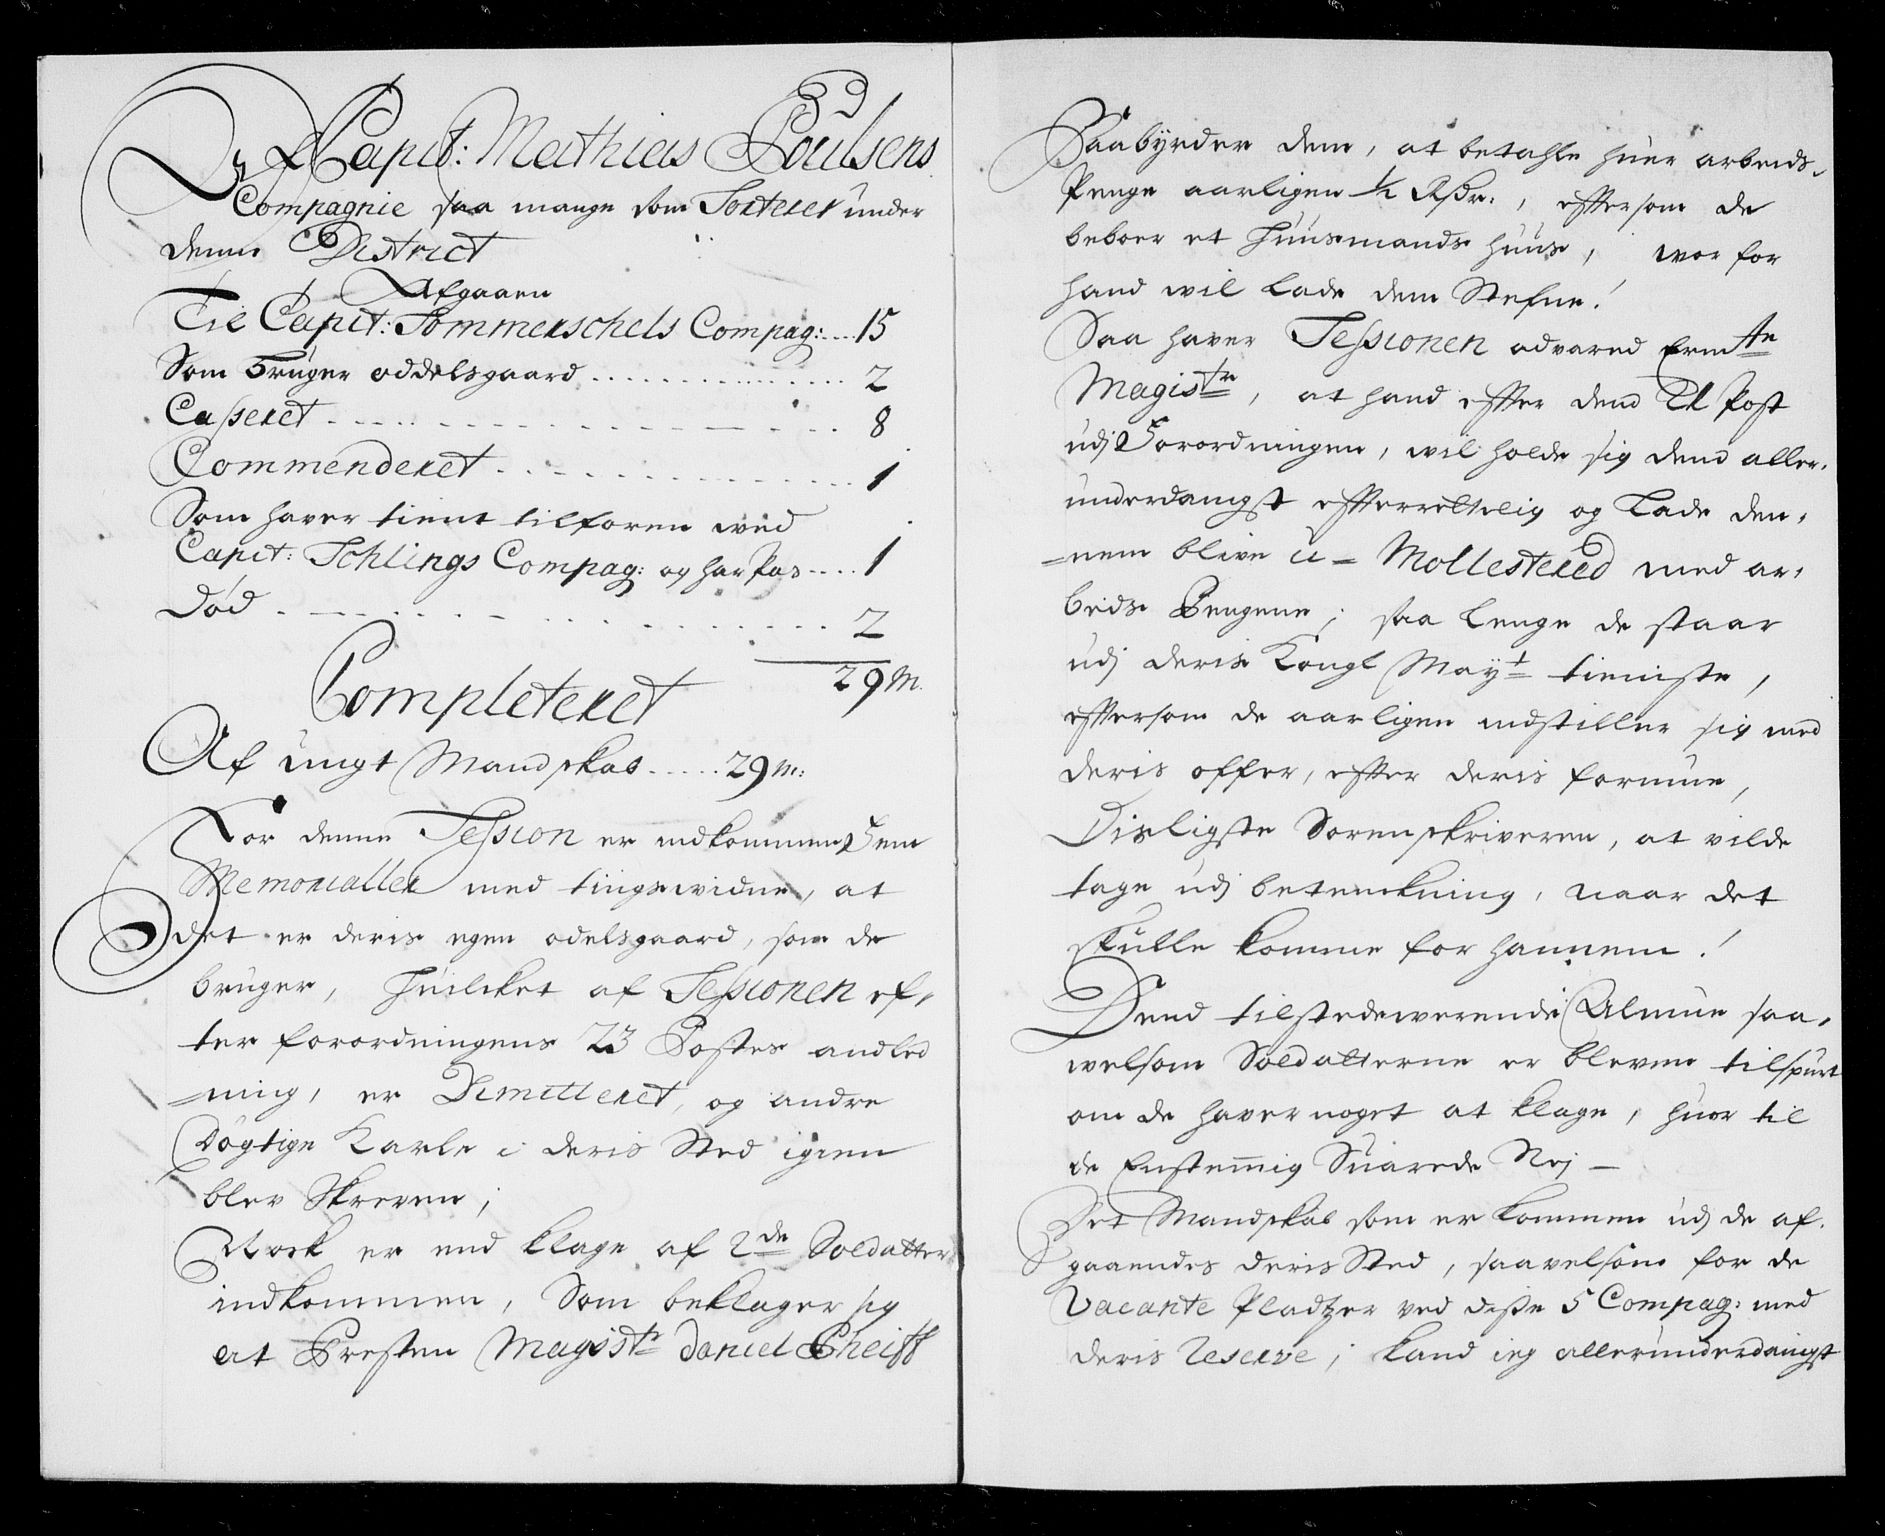 Af Capit: Mathias Poulsens
Compagnie saa mange som Sorterer under
denne District
Afgaaen
Til Capit: Sommerschels Compag: .... 15
Som bruger oddelsgaard ............... 2
Casseret ............... 8
Commenderet ............... 1
Som haver tient tilforen wed
Capit: Schlings Compag: og har Pas .... 1
Død ............... 2
29 m.
Completeret
Af ungt Mandskab ..... 29 m:
For denne Session er indkommen Fem
Memorialler med tingswidne, at
det er deris egen odelsgaard, som de
bruger, huilcket af Sessionen ef,
ter forordningens 23 Postes andled
=ning, er Dimitteret, og andre
Døgtige Karle i deris Sted igien
blev Skreven;
Nock er end klage af 2de Soldatter
indkommen, Som beklager sig
at Presten Magistr Daniel Pheiff
Paabyrder dem, at betahle huer arbeids,
Penge aarligen ½ Rdr., effersom de
beboer et Huusmands huus, wor for
hand wil lade dem Stefne!
Saa haver Sessionen advared Ermte
Magistr, at hand efter dend 21 Post
udj Forordningen, wil holde sig dend aller,
underdanigst efterrettelig og Lade den,
=nem blive u = Mollestered med ar,
beids Pengene; saa lenge de staar
udj deris Kongl Mayt tieniste,
effersom de aarligen indstiller sig med
deris offer, efter deris formue,
Disligste Sorenskriveren, at vilde
tage udj betenckning, naar det
skulle komme for hannem!
Dend tilstedewerende Almue saa,
welsom Soldatterne er bleven tilspurt
om de haver noget at klage, huor til
de Enstemig Suarede Nej —
Det Mandskab som er kommen udj de af,
gaaendes deris Sted, saavelsom for de
Vacante Pladtzer ved disse 5 Compag: med
deris Reserve; kand ieg allerunderdanigst